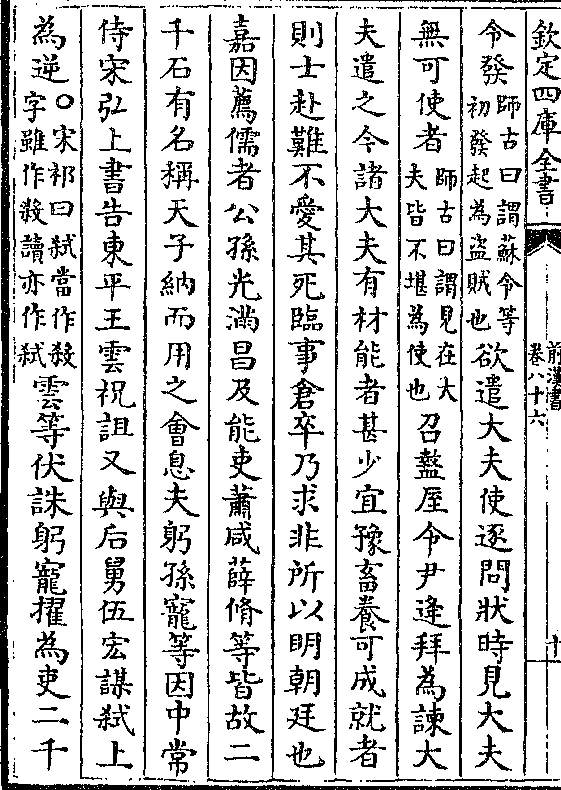 欽定四庫全書
前漢書
卷八十六
十
令發師古曰謂蘇令等初發起為盜賊也欲遣大夫使逐問狀時見大夫
無可使者師古曰謂見在大夫皆不堪為使也召盩厔令尹逢拜為諫大
夫遣之今諸大夫有材能者甚少宜豫畜養可成就者
則士赴難不愛其死臨事倉卒乃求非所以明朝廷也
嘉因薦儒者公孫光滿昌及能吏蕭咸薛脩等皆故二
千石有名稱天子納而用之會息夫躬孫寵等因中常
侍宋弘上書告東平王雲祝詛又與后舅伍宏謀弒上
為逆○宋祁曰弑當作殺字雖作殺讀亦作弑雲等伏誅躬寵擢為吏二千